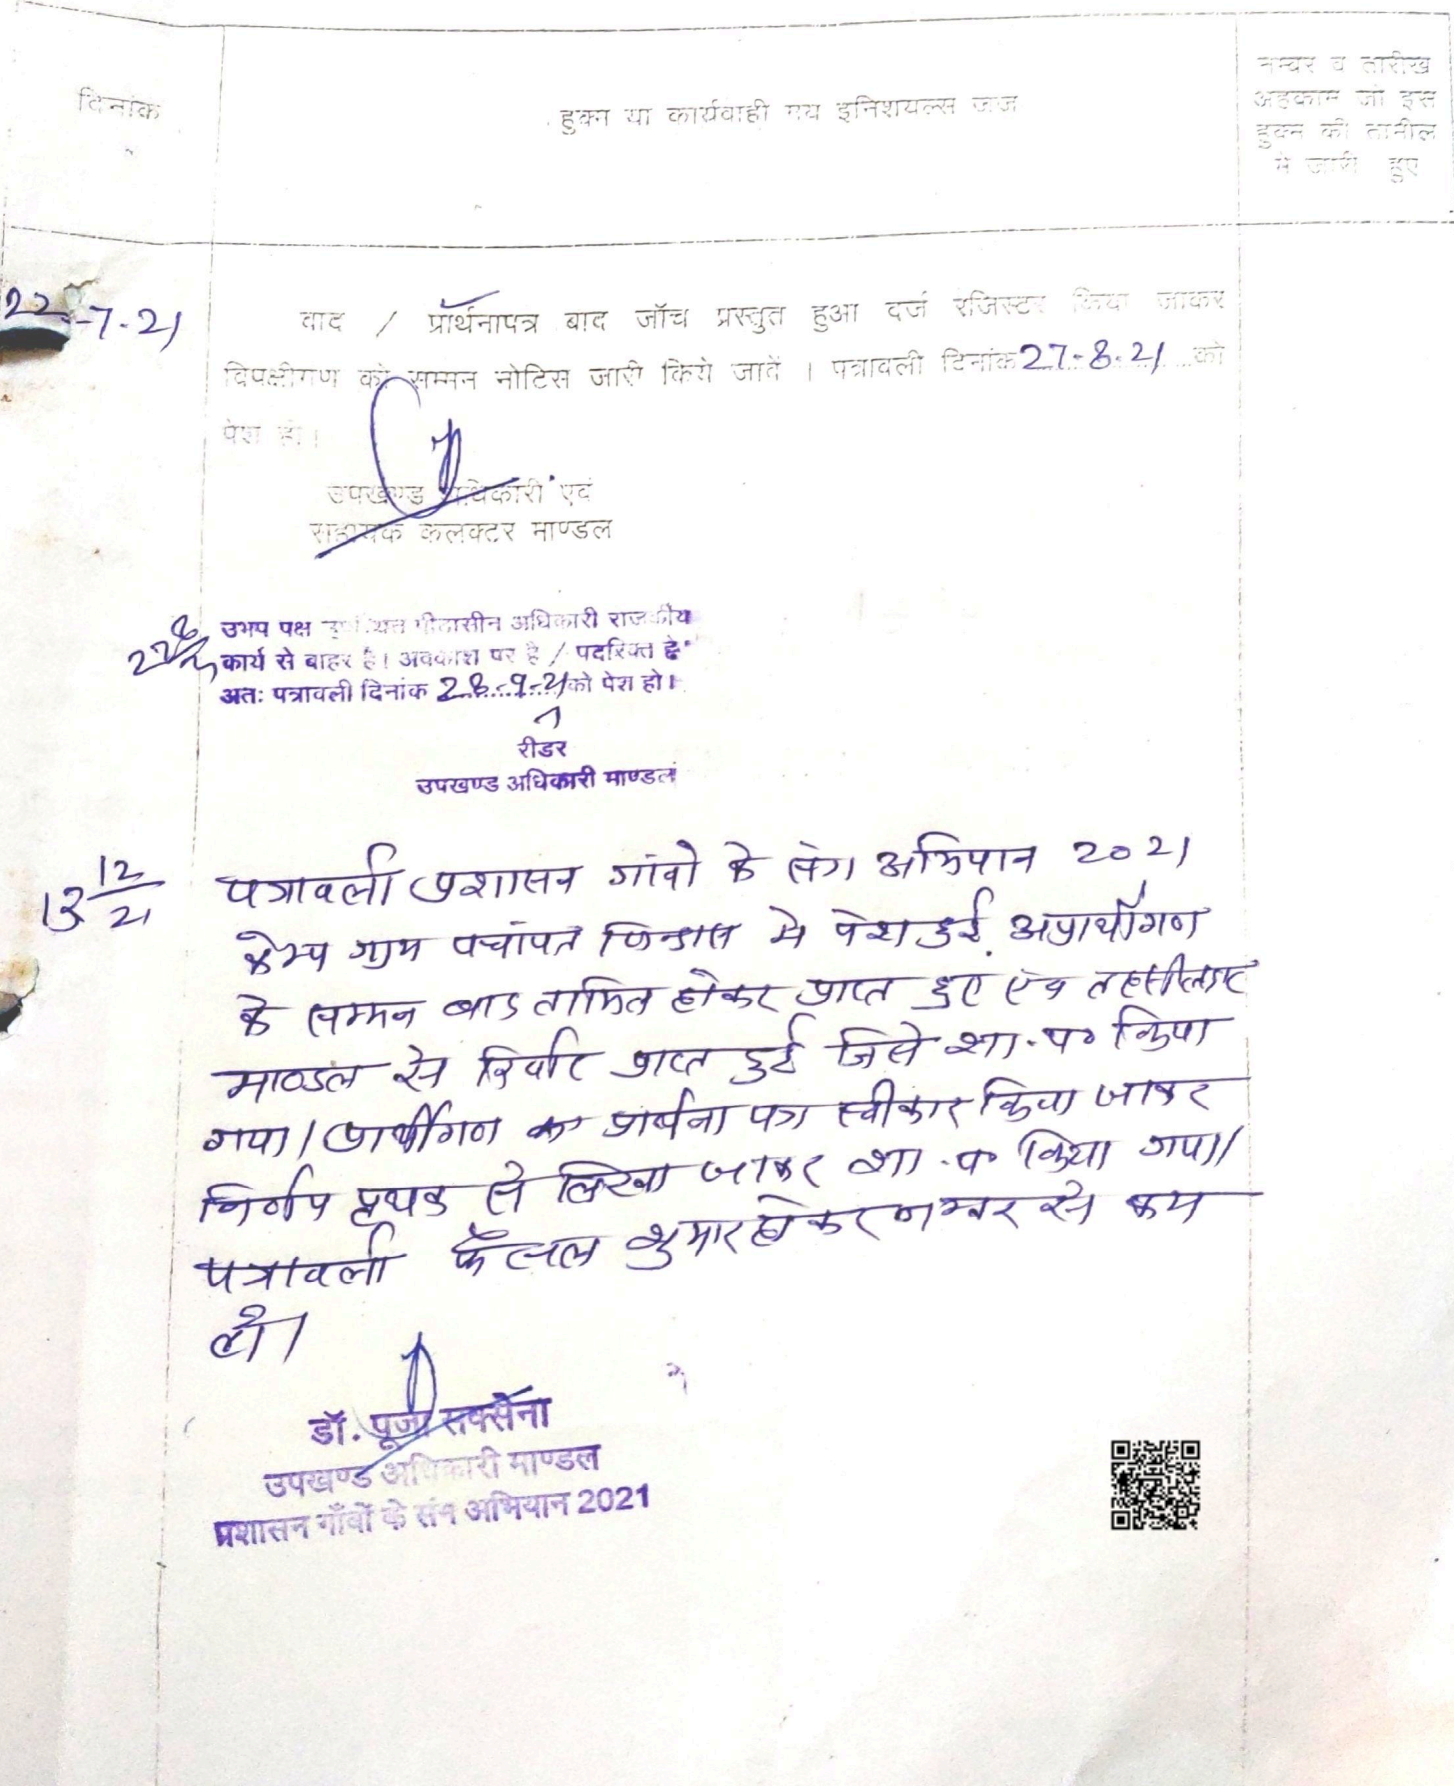 दिनांक
हुक्म या कार्यवाही मय इनिशयल्स जज
नम्बर व तारीख
अहकाम जो इस
हुक्म की तामील
में जारी हुए
22-7-21
वाद / प्रॉर्थनापत्र बाद जॉच प्रस्तुत हुआ दर्ज रजिस्टर किया जाकर
विपक्षीगण को सम्मन नोटिस जारी किये जावें । पत्रावली दिनांक 27-8-21 को
पेश हो।
उपखण्ड अधिकारी एवं
सहायक कलक्टर माण्डल
उभय पक्ष उपस्थित पीठासीन अधिकारी राजकीय
कार्य से बाहर है। अवकाश पर है / पदरिक्त है
अतः पत्रावली दिनांक 28-9-21 को पेश हो।
रीडर
उपखण्ड अधिकारी माण्डल
13 12/21
पत्रावली प्रशासन गांवो के संग अभियान 2021
केम्प ग्राम पचांयत में पेश हुई. अप्रार्थीगण
के सम्मन बाद तामिल होकर प्राप्त हुए एंव तहसीलदार
माण्डल से रिर्पोट प्राप्त हुई जिसे शा.प० किया
गया। प्रार्थीगण का प्रार्थना पत्र स्वीकार किया जाकर
निर्णय पृथक से लिखा जाकर शा.प० किया गया।
पत्रावली फैसल शुमार होकर नम्बर से कम
हो।
डॉ. पूजा सक्सैना
उपखण्ड अधिकारी माण्डल
प्रशासन गाँवों के संग अभियान 2021